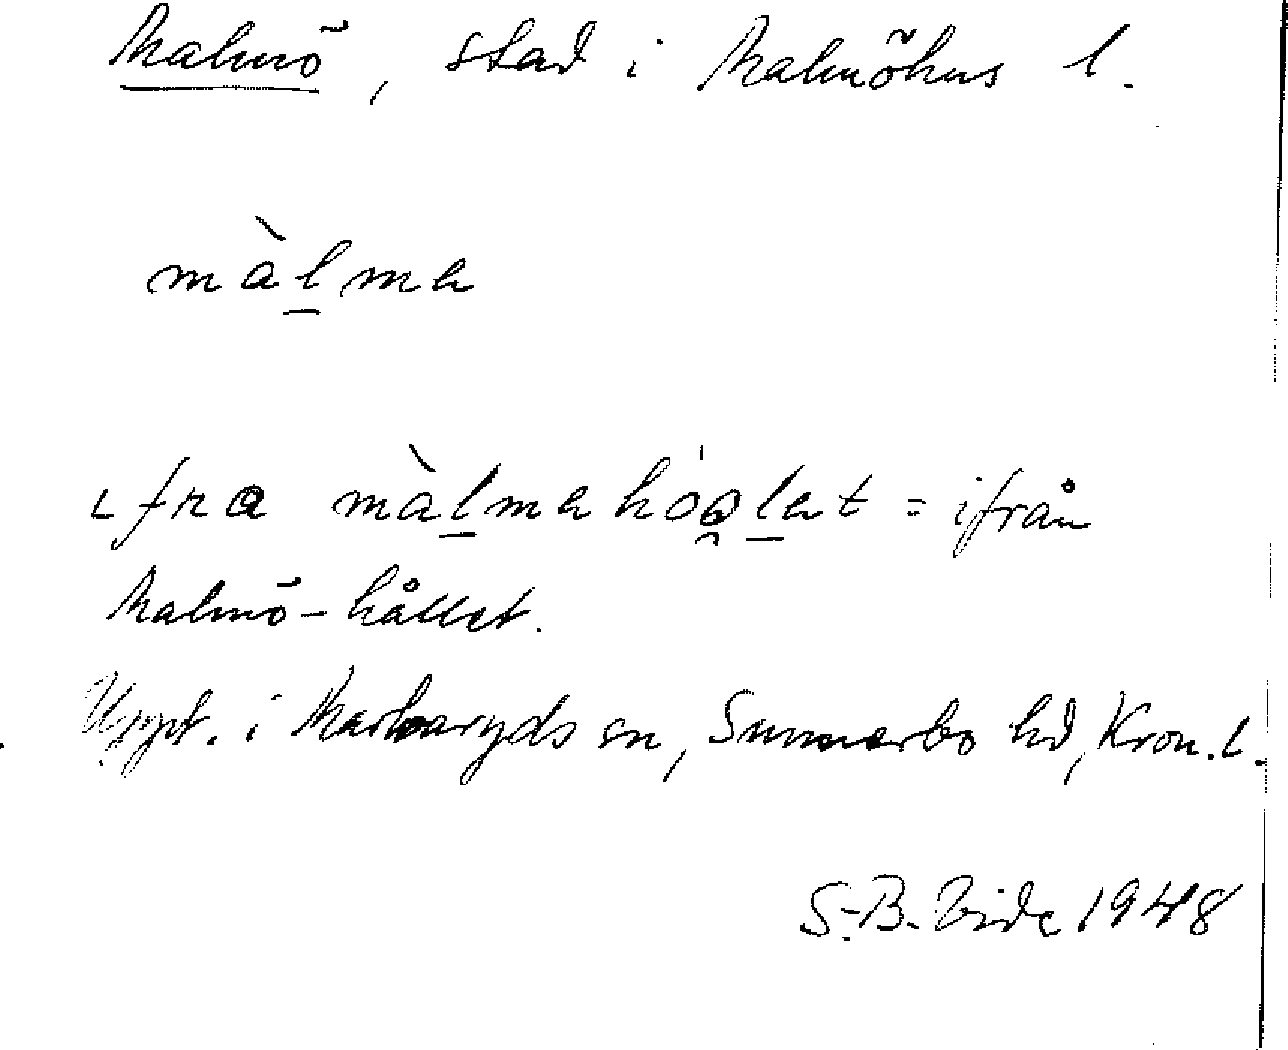 Malmö, stad i Malmöhus l.
màlma
ɩfra màlmahóo̯lat = ifrån
Malmö-hållet.
Uppt. i Markaryds sn, Sunnerbo hd, Kron. l.
S.-B. Vide 1948